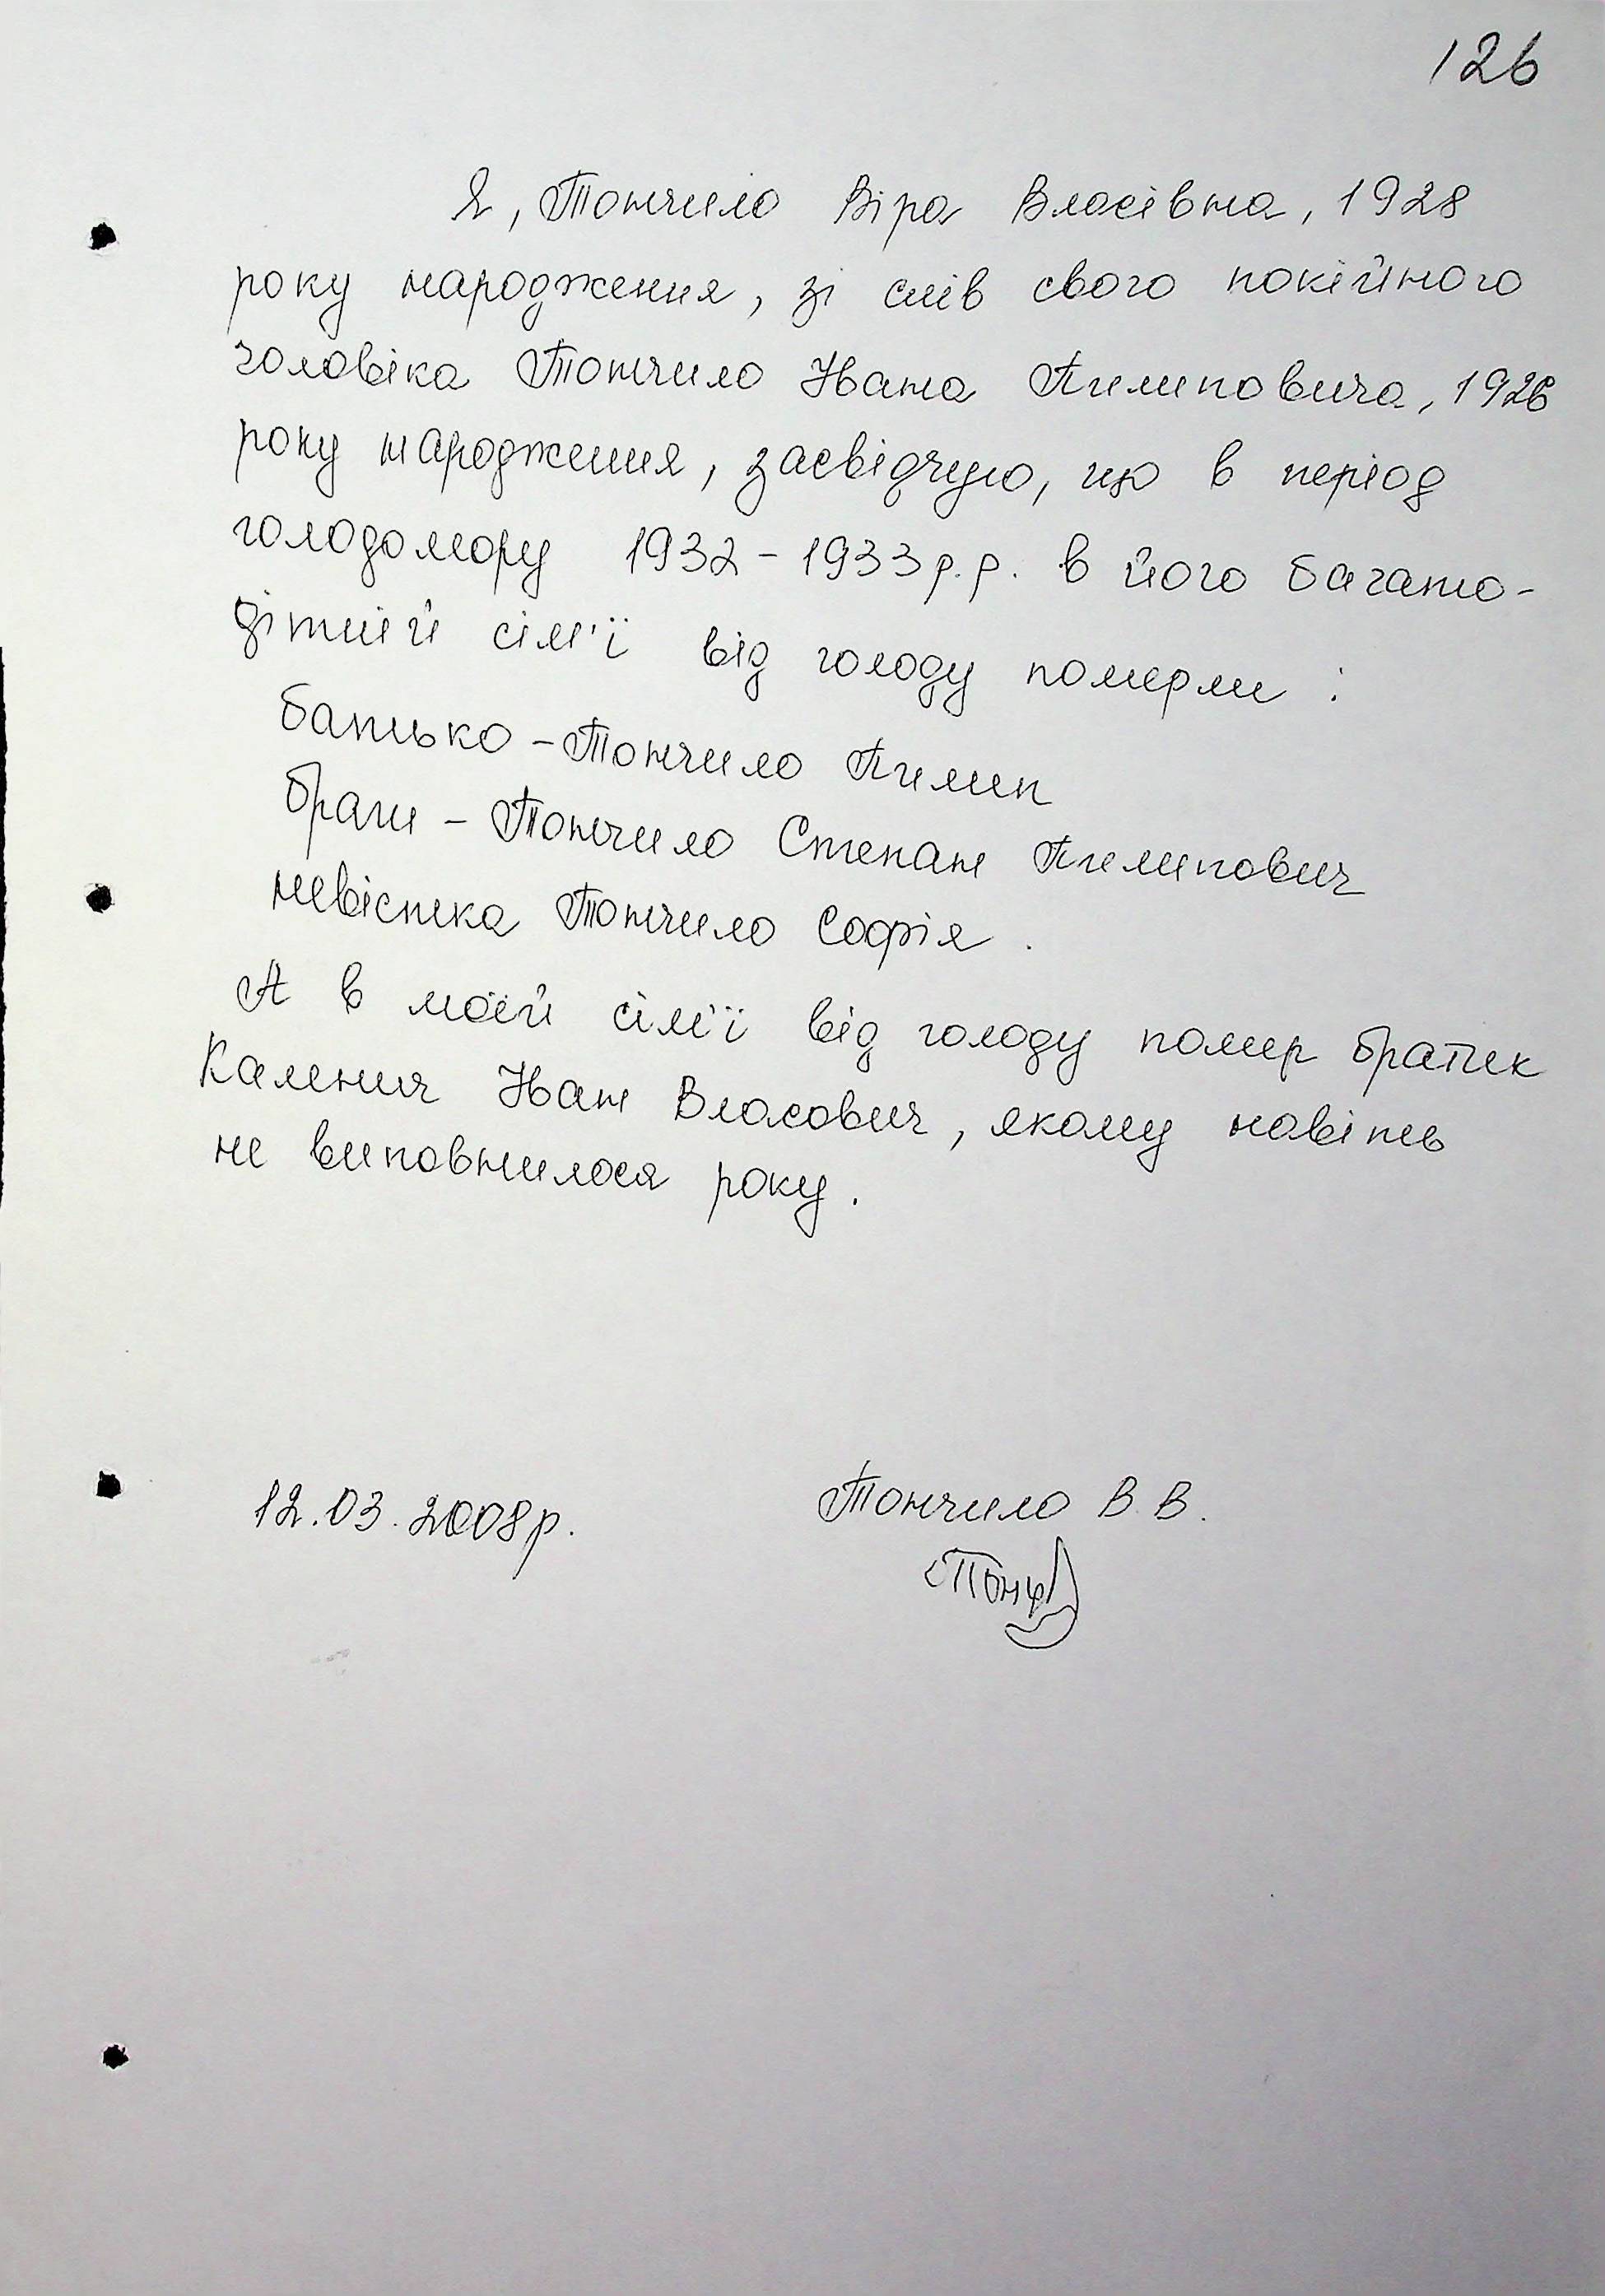 126
Я, Тончило Віра Власівна, 1928
року народження, зі слів свого покійного
чоловіка Тончило Івана Пилиповича, 1926
року народження, засвідчую, що в період
голодомору 1932-1933 р.р. в його багато-
дітній сім'ї від голоду померли :
батько - Тончило Пилип
брати - Тончило Степан Пилипович
невістка Тончило Софія .
А в моїй сім'ї від голоду помер братик
Каленич Іван Власович, якому навіть
не виповнилося року .
12.03.2008р. Тончило В. В.
Тонч